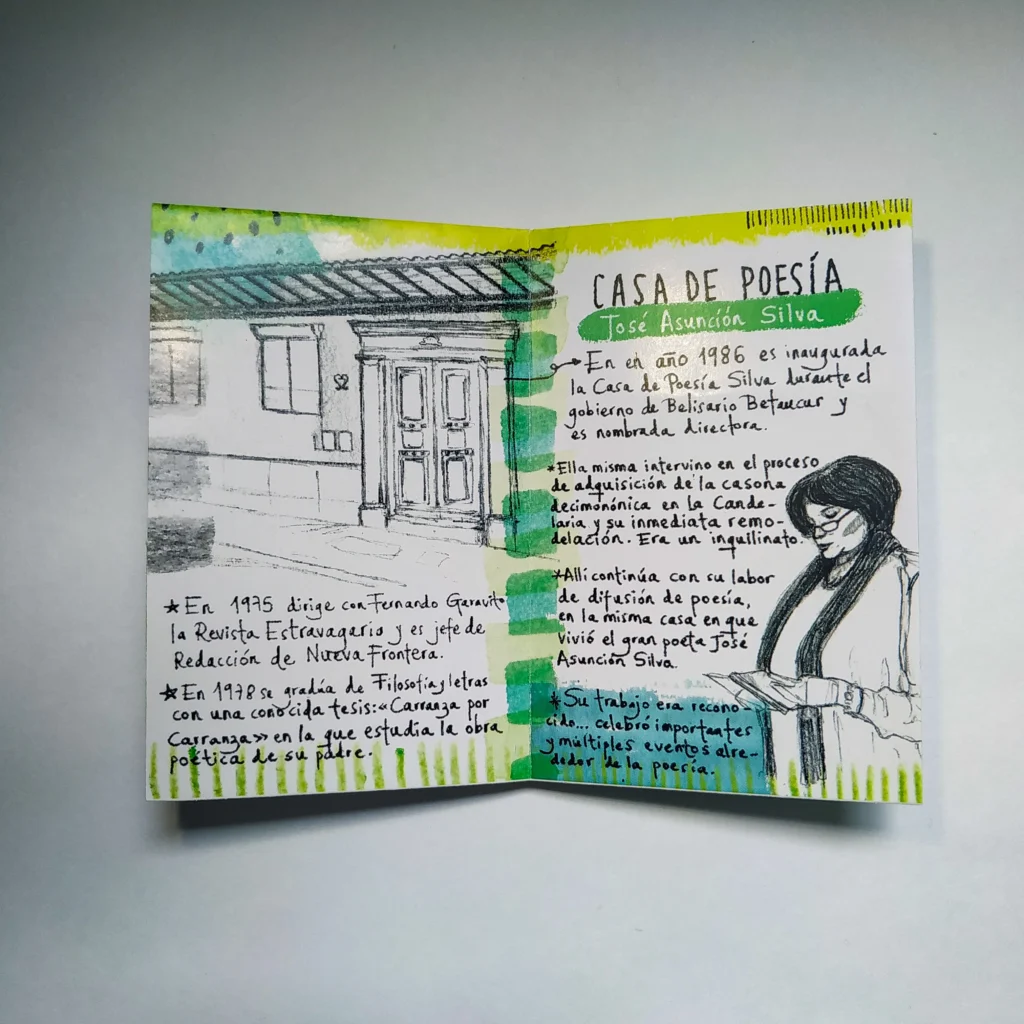 ★ En 1975 dirige con Fernando Garavito
la Revista Estravagario y es jefe de
Redacción de Nueva Frontera.
★ En 1978 se gradúa de Filosofía y letras
con una conocida tesis: «Carranza por
Carranza» en la que estudia la obra
poética de su padre.
CASA DE POESÍA
José Asunción Silva
En en año 1986 es inaugurada
la Casa de Poesía Silva durante el
gobierno de Belisario Betancur y
es nombrada directora.
*Ella misma intervino en el proceso
de adquisición de la casona
decimonónica en la Cande-
laria y su inmediata remo-
delación. Era un inquilinato.
*Allí continúa con su labor
de difusión de poesía,
en la misma casa en que
vivió el gran poeta José
Asunción Silva.
*Su trabajo era recono-
cido... celebró importantes
y múltiples eventos alre-
dedor de la poesía.